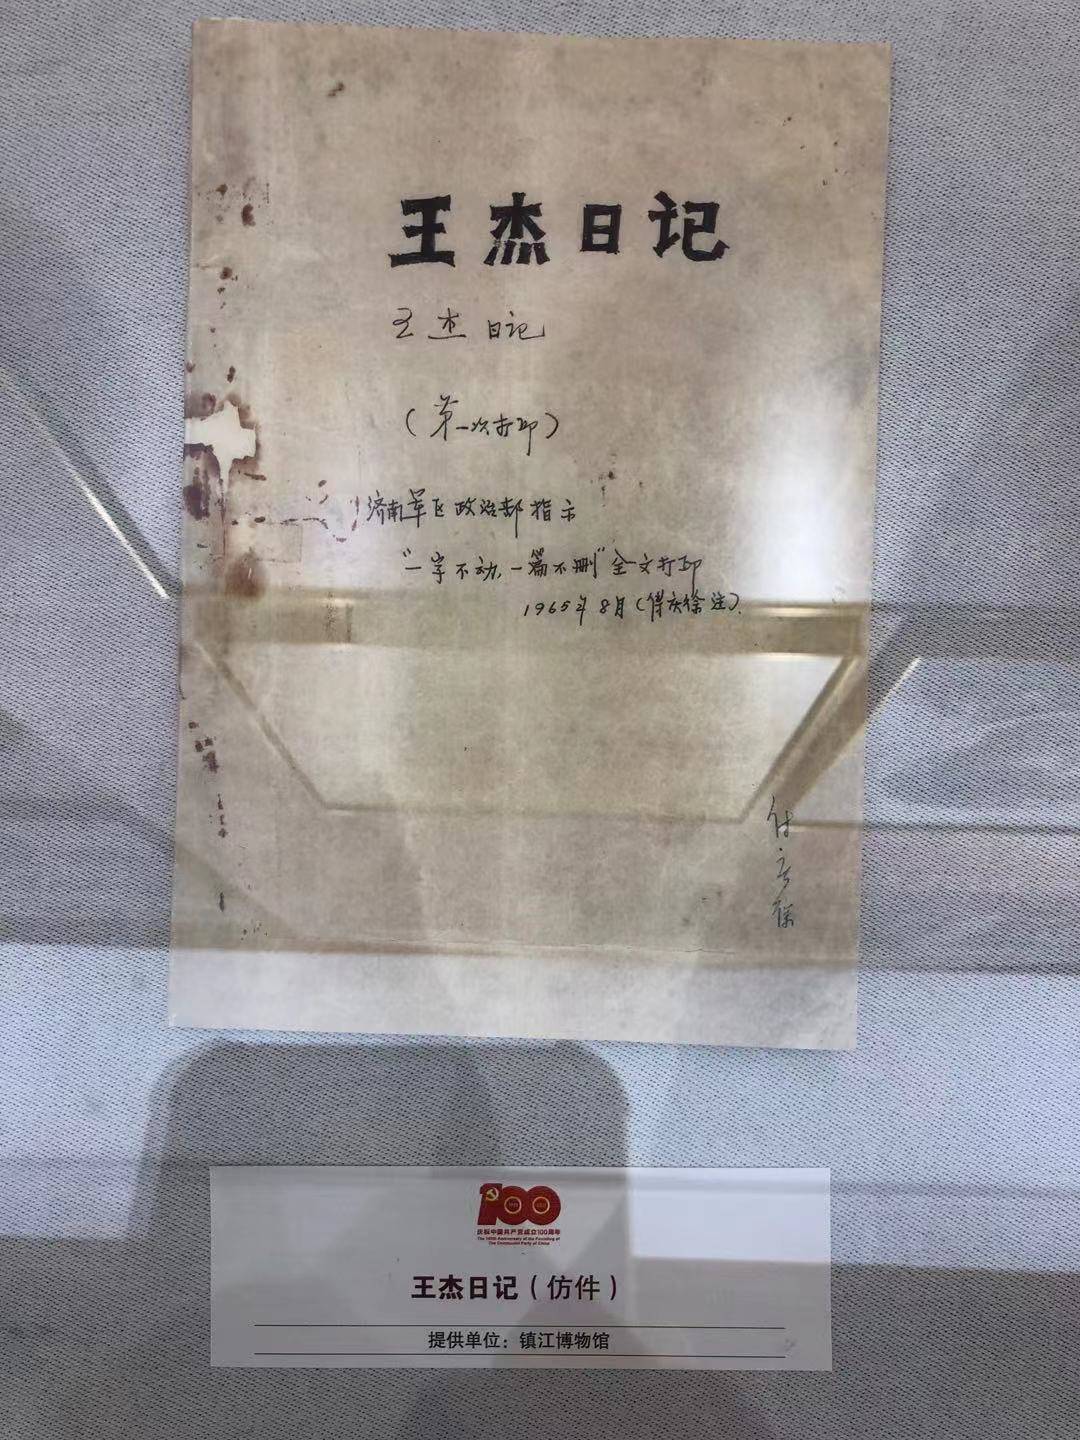 王杰日记
王杰日记
（第一次打印）
济南军区政治部指示
“一字不动，一篇不删”全文打印
1965年8月（傅庆徐注）．
100
庆祝中国共产党成立100周年
The 100th Anniversary of the Founding of
The Communist Party of China
王杰日记（仿件）
提供单位：镇江博物馆